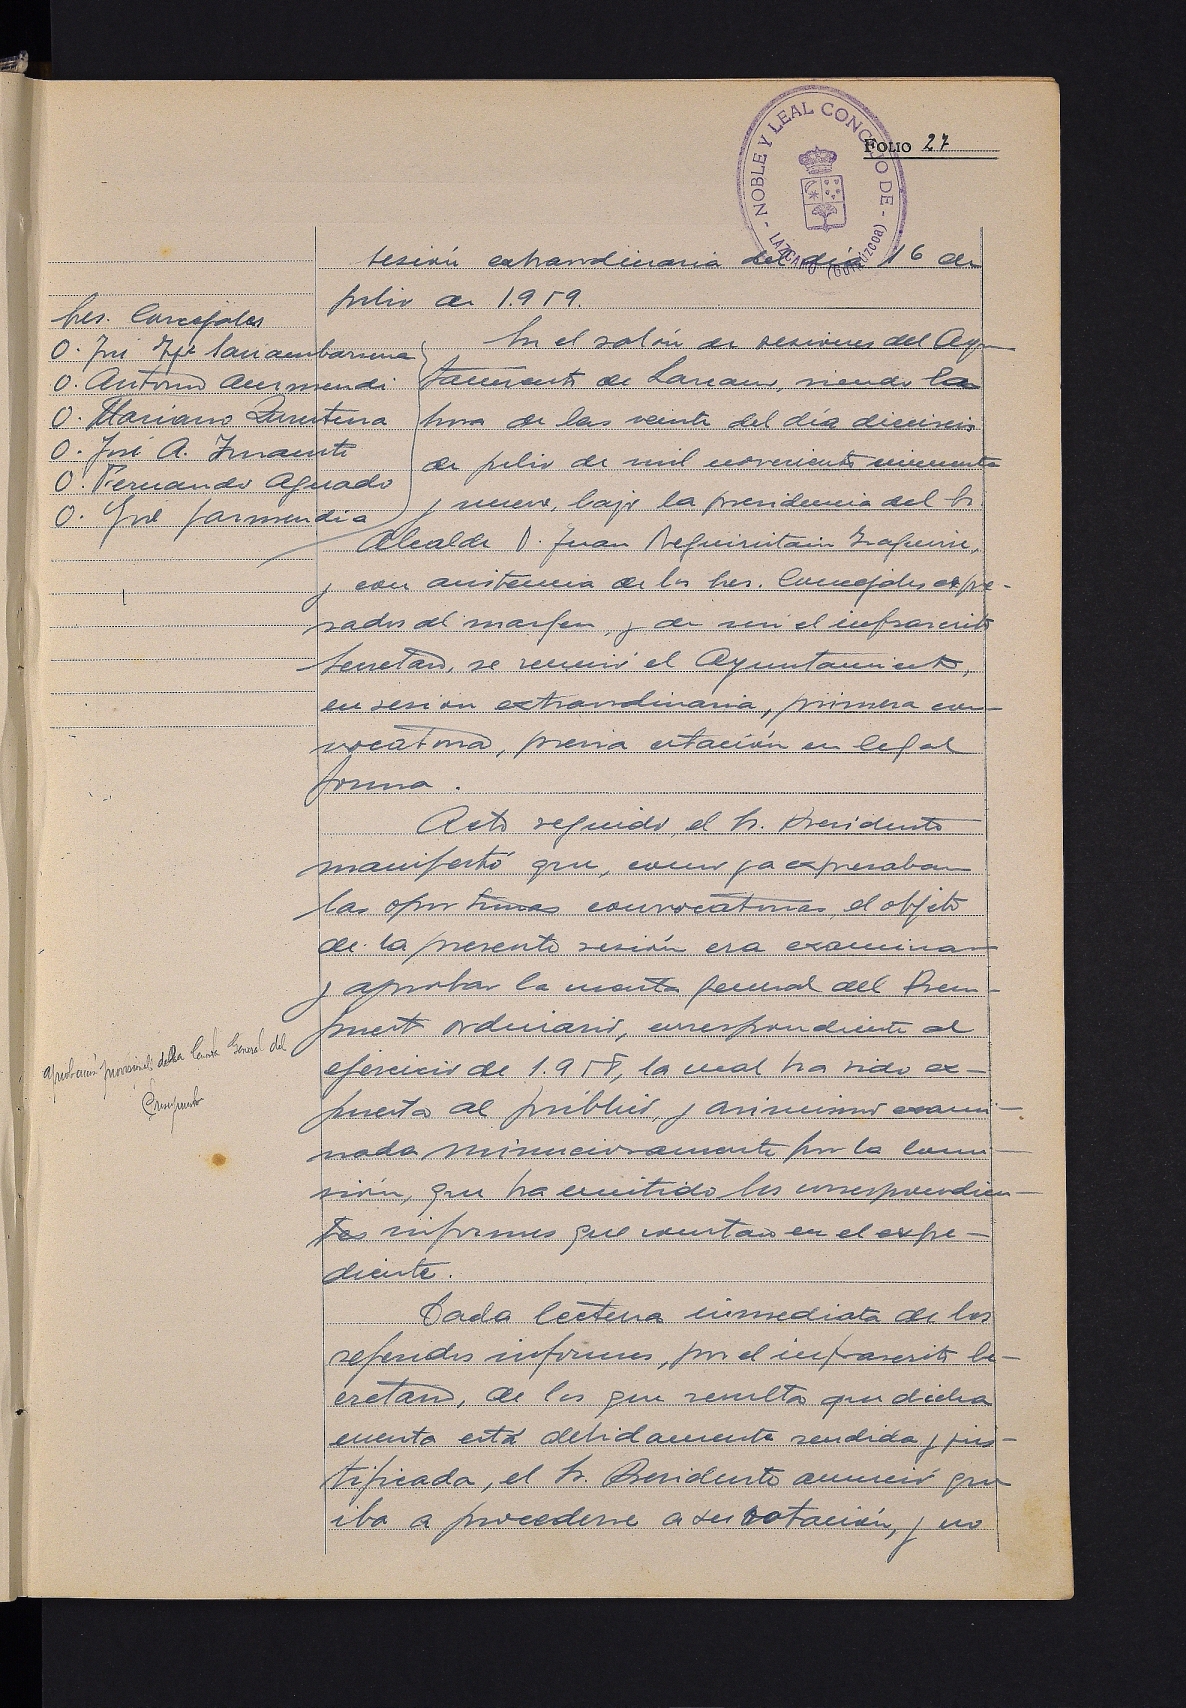 NOBLE Y LEAL CONCEJO DE - LAZCANO (GUIPÚZCOA) -
FOLIO 27
Sesión extraordinaria del día 16 de
julio de 1.959.
Sres. Concejales
D. José
D. Antonio Aurmendi
D. Mariano
D. José A.
D. Fernando Aguado
D. José Garmendia
En el salón de sesiones del Ayun
tamiento de Lazcano, siendo la
hora de las veinte del día dieciseis
de julio de mil novecientos cincuenta
y nueve, bajo la presidencia del Sr.
Alcalde D. Juan
y con asistencia de los Sres. Concejales expre-
sados al margen, y de mi el infrascrito
Secretario, se reunió el Ayuntamiento,
en sesión extraordinaria, primera con-
vocatoria, previa citación en legal
forma.
Acto seguido, el Sr. Presidente
manifestó que, como ya expresaban
las oportunas convocatorias, el objeto
de la presente sesión era examinar
y aprobar la cuenta general del Presu-
puesto ordinario, correspondiente al
ejercicio de 1.958, la cual ha sido ex-
puesta al público, y asimismo exami-
nada minuciosamente por la Comi-
sión, que ha emitido los correspondien-
tes informes que constan en el expe-
diente.
aprobación provisional de la Cuenta General del
Presupuesto
Dada lectura inmediata de los
referidos informes, por el infrascrito Se-
cretario, de los que resulta que dicha
cuenta está debidamente rendida y jus-
tificada, el Sr. Presidente anunció que
iba a procederse a su votación, y no